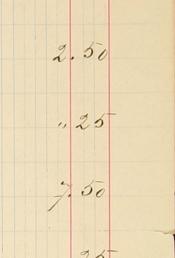 2.50
„ 25
7.50
25